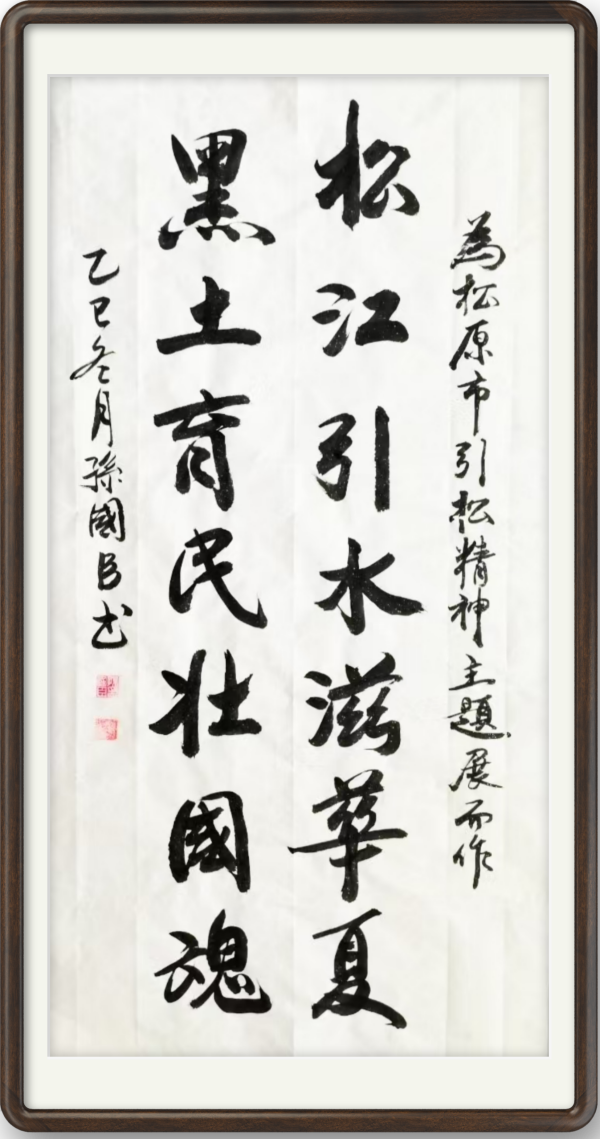 為松原市引松精神主題展而作
松江引水滋華夏
黑土育民壯國魂
乙巳冬月孫國臣书